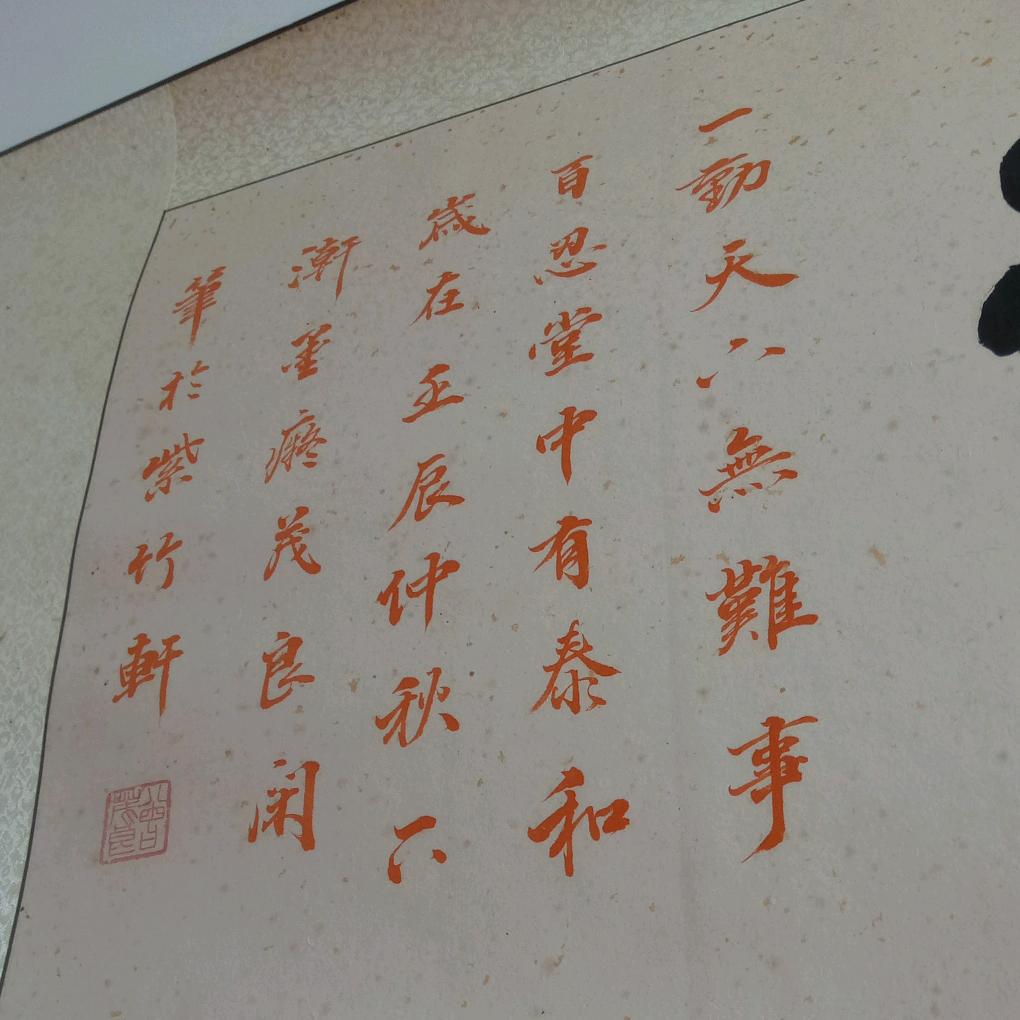 一勤天下無難事
百忍堂中有泰和
歲在壬辰仲秋下
澣墨癡茂良闲
筆於紫竹軒